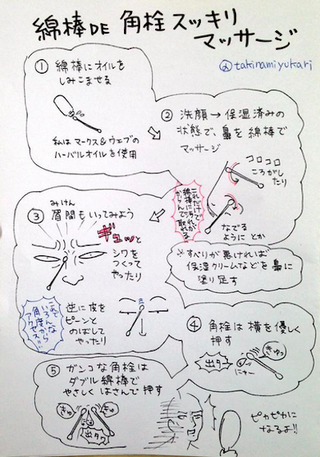 綿棒DE 角栓スッキリ
マッサージ
@takinamiyukari
① 綿棒にオイルを
しみこませる
私はマークス&ウェブの
ハーバルオイルを使用
② 洗顔→保湿済みの
状態で、鼻を綿棒で
マッサージ
コロコロ
ころがし
たり
なでる
ように とか
※すべりが悪ければ
保湿クリームなどを鼻に
塗り足す
③ 眉間もいってみよう
みけん
ギュッと
シワを
つくって
やったり
逆に皮を
ピーンと
のばして
やったり
④ 角栓は横を優しく
押す
出タッ
ニャー
きゅっ
⑤ ガンコな角栓は
ダブル綿棒で
やさしくはさんで押す
きゅっ
きゅっ
出タッ
ピカピカに
なるよ!!